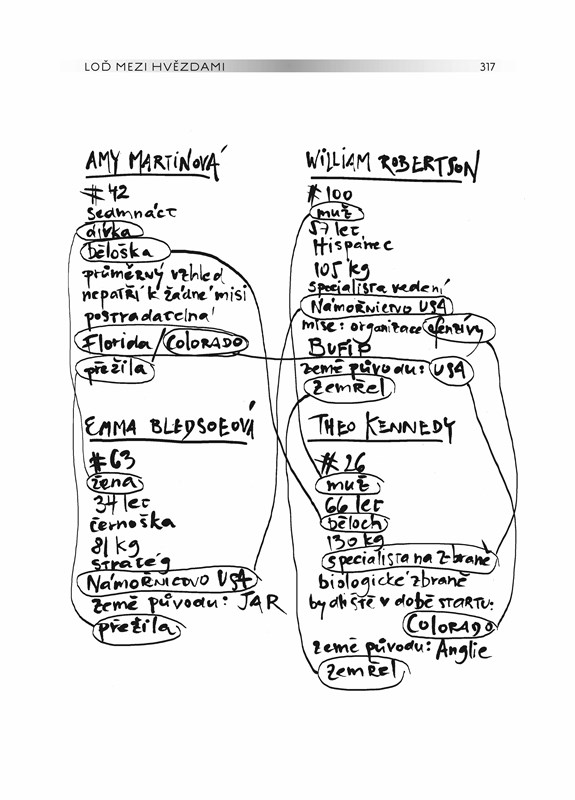 LOĎ MEZI HVĚZDAMI 317
AMY MARTINOVÁ
#42
sedmnáct
dívka
běloška
průměrný vzhled
nepatří k žádné misi
postradatelná
Florida / COLORADO
přežila
WILLIAM ROBERTSON
#100
muž
57 let
Hispánec
105 kg
specialista vedení
NÁMOŘNICTVO USA
mise: organizace ofenzívy
BUFIP
země původu: USA
Zemřel
EMMA BLEDSOEOVÁ
#63
žena
34 let
černoška
81 kg
stratég
NÁMOŘNICTVO USA
země původu: JAR
přežila
THEO KENNEDY
#26
muž
66 let
běloch
130 kg
specialista na zbraně
biologické zbraně
bydliště v době STARTU:
COLORADO
země původu: Anglie
zemřel